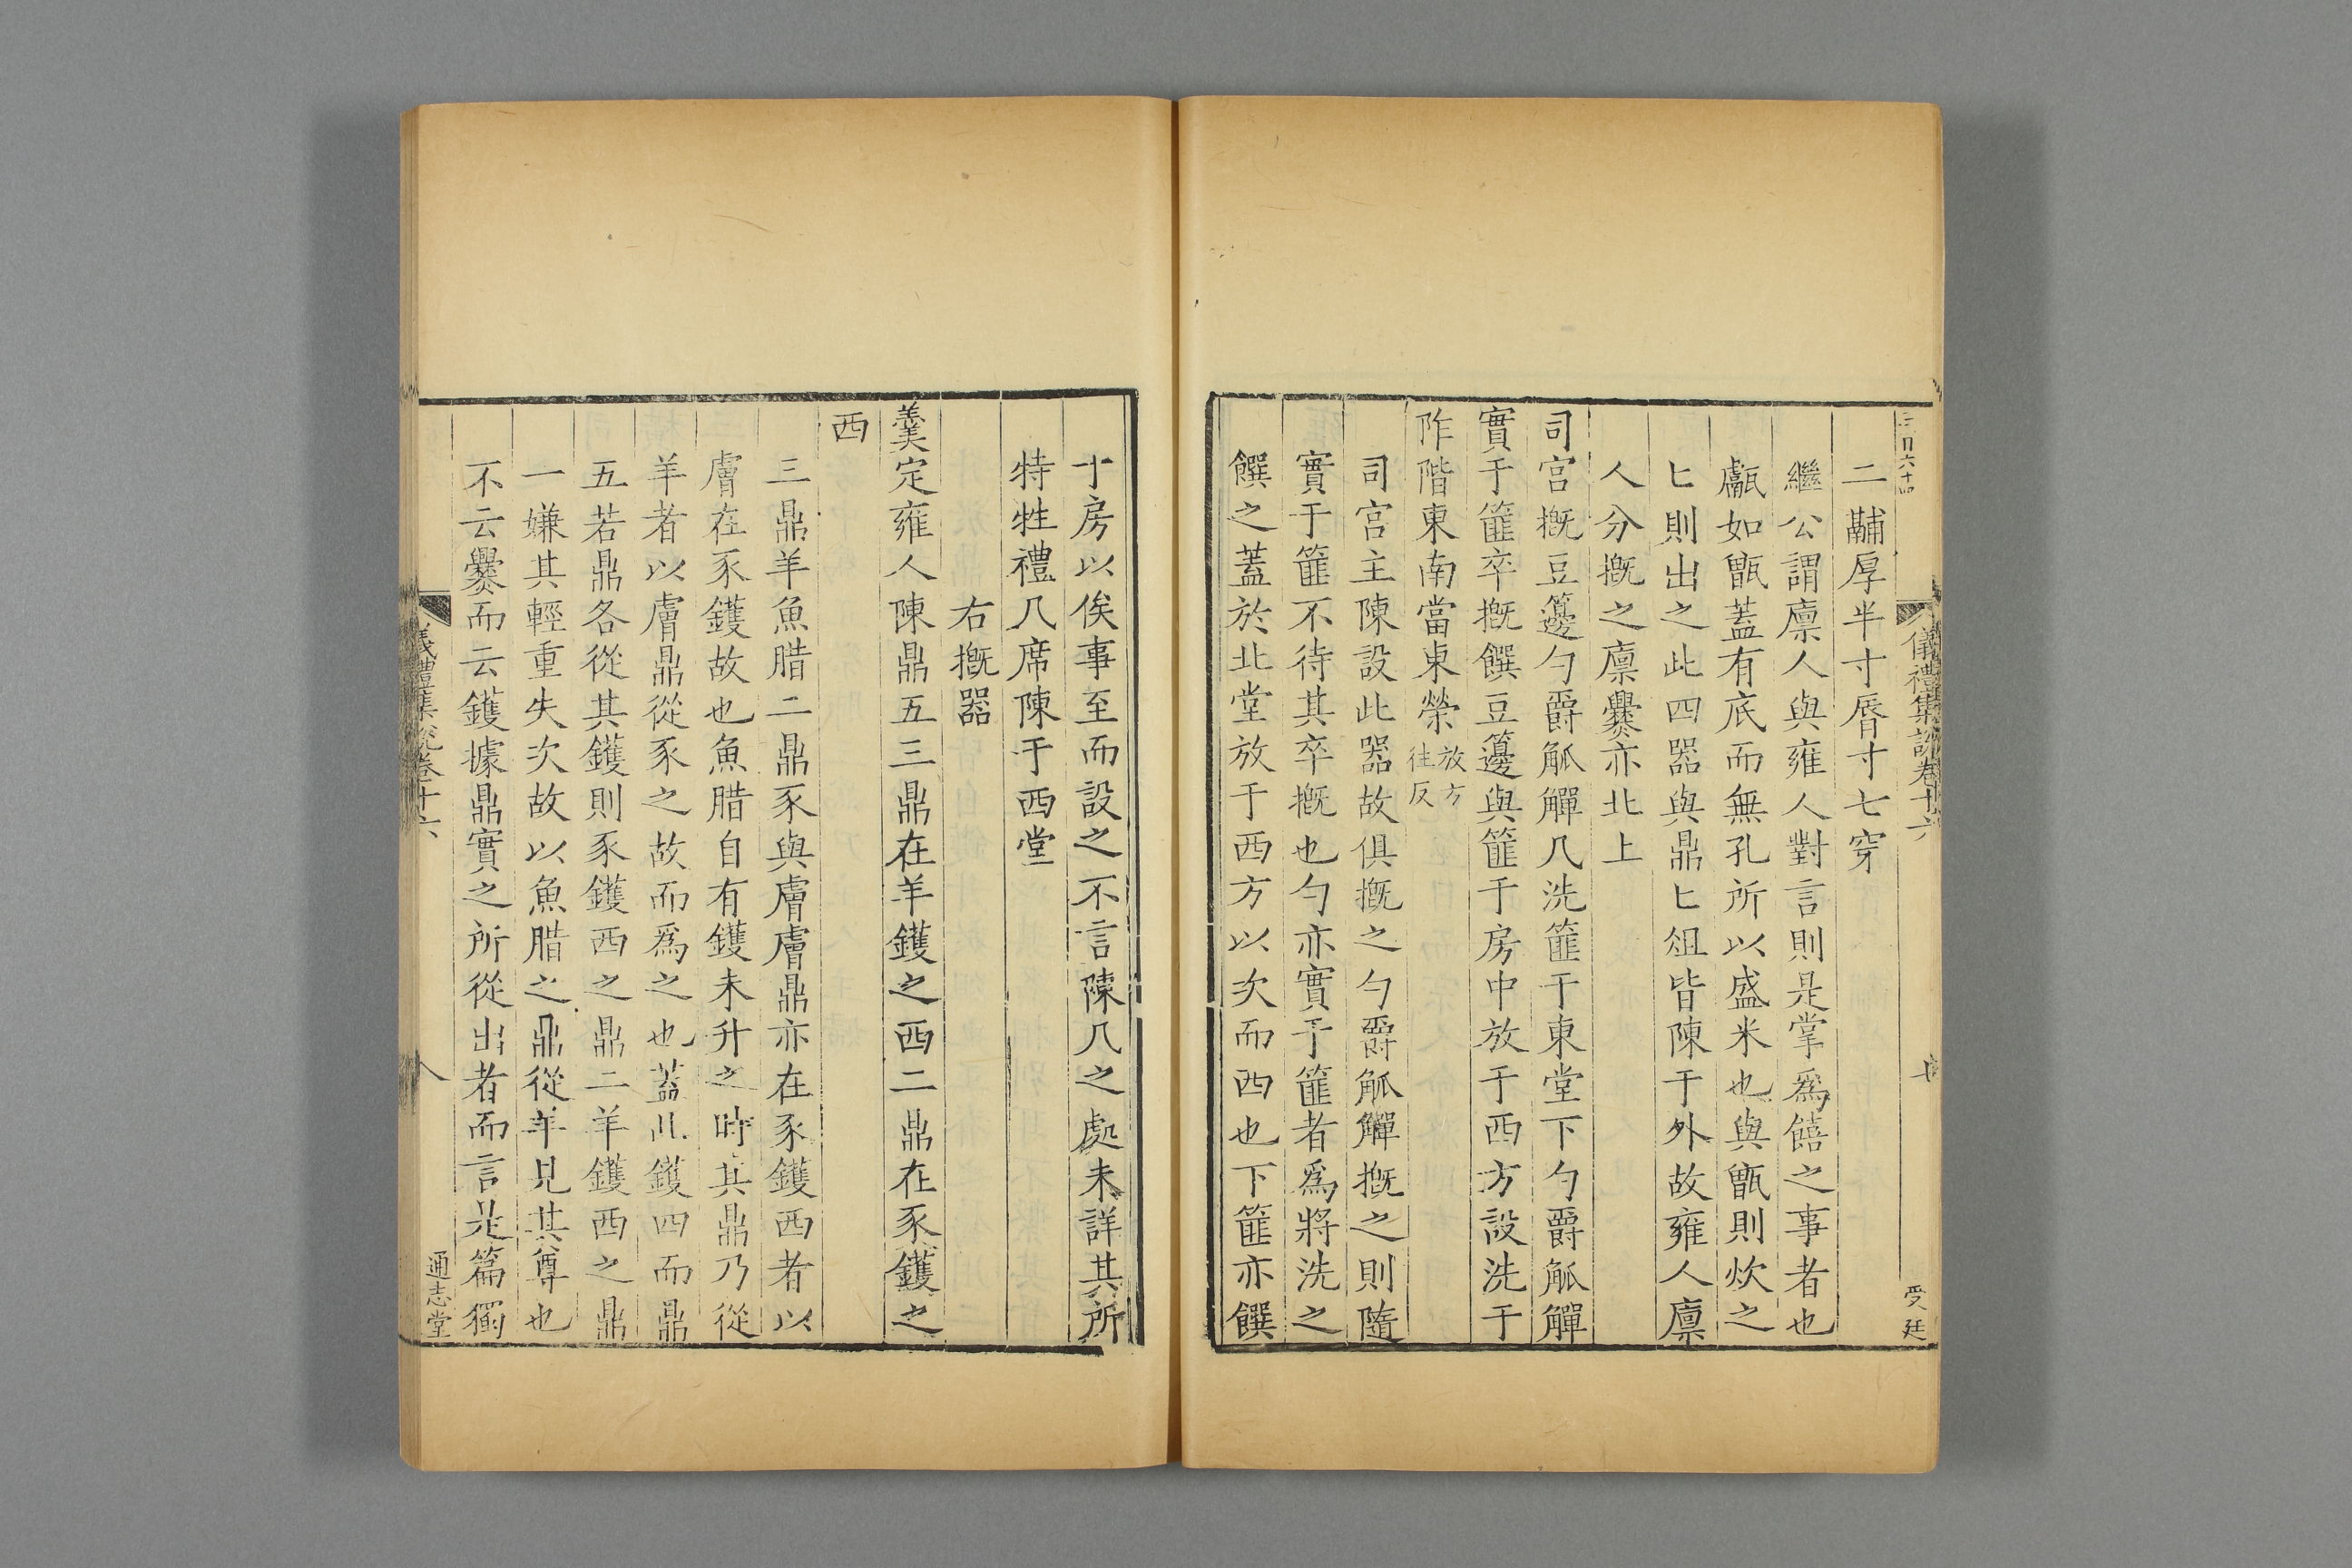 儀禮集說卷十六
受廷
二鬴厚半寸脣寸七穿
繼公謂廪人與雍人對言則是掌爲饎之事者也
甗如甑蓋有底而無孔所以盛米也與甑則炊之
匕則出之此四器與鼎匕俎皆陳于外故雍人廪
人分摡之廪爨亦北上
司宫摡豆籩勺爵觚觶几洗篚于東堂下勺爵觚觶
實于篚卒摡饌豆籩與篚于房中放于西方設洗于
阼階東南當東榮放方往反
司宫主陳設此器故俱摡之勺爵觚觶摡之則隨
實于篚不待其卒摡也勺亦實于篚者爲將洗之
饌之蓋於北堂放于西方以次而西也下篚亦饌
十房以俟事至而設之不言陳几之處未詳其所
特牲禮几席陳于西堂
右摡器
羹定雍人陳鼎五三鼎在羊鑊之西二鼎在豕鑊之
西
三鼎羊魚腊二鼎豕與膚膚鼎亦在豕鑊西者以
膚在豕鑊故也魚腊自有鑊未升之時其鼎乃從
羊者以膚鼎從豕之故而爲之也蓋此鑊四而鼎
五若鼎各從其鑊則豕鑊西之鼎二羊鑊西之鼎
一嫌其輕重失次故以魚腊之鼎從羊見其尊也
不云爨而云鑊據鼎實之所從出者而言是篇獨
儀禮集說卷十六
八
通志堂